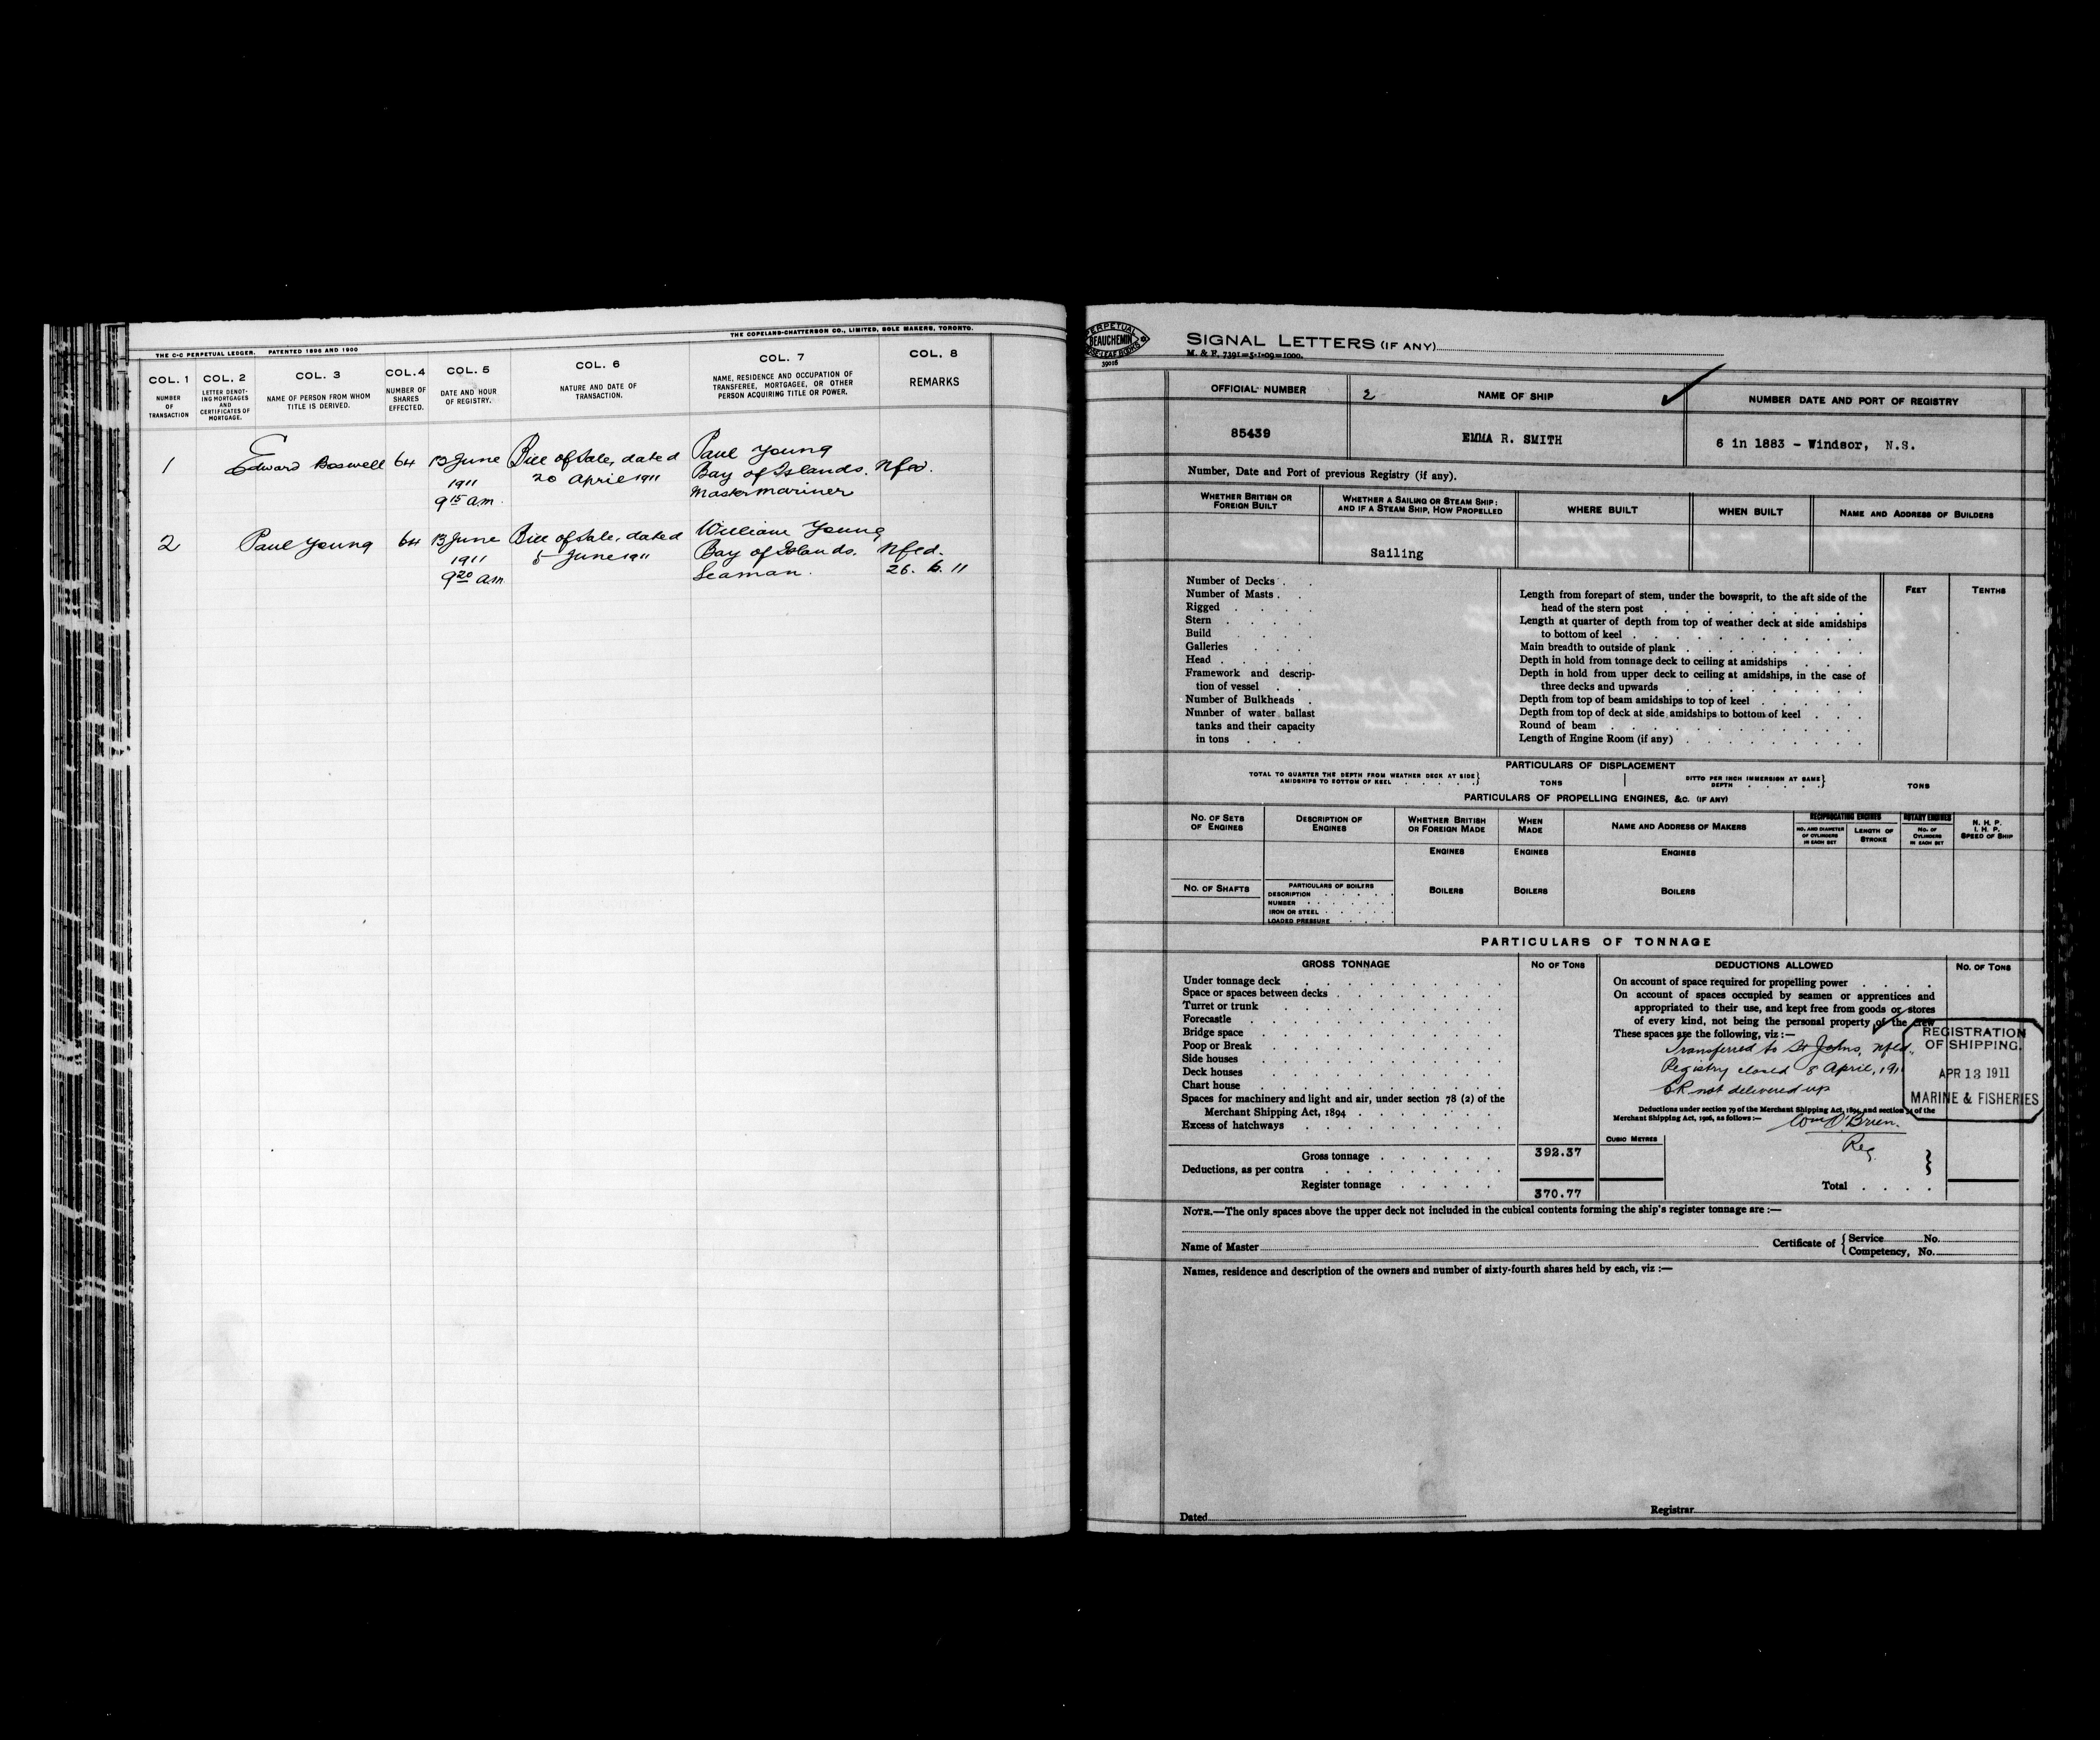 THE C-C PERPETUAL LEDGER. PATENTED 1896 AND 1900
THE COPELAND-CHATTERSON CO., LIMITED, SOLE MAKERS, TORONTO.
COL. 1 COL. 2 COL. 3 COL. 4 COL. 5 COL. 6 COL. 7 COL. 8
NUMBER OF TRANSACTION
LETTER DENOTING MORTGAGES AND CERTIFICATES OF MORTGAGE.
NAME OF PERSON FROM WHOM TITLE IS DERIVED.
NUMBER OF SHARES EFFECTED.
DATE AND HOUR OF REGISTRY.
NATURE AND DATE OF TRANSACTION.
NAME, RESIDENCE AND OCCUPATION OF TRANSFEREE, MORTGAGEE, OR OTHER PERSON ACQUIRING TITLE OR POWER.
REMARKS
1 Edward Boswell 64 13 June Bill of Sale, dated Paul Young
1911 20 April 1911 Bay of Islands. Nfld.
9 15 a.m. Master mariner
2 Paul Young 64 13 June Bill of Sale, dated William Young
1911 5 June 1911 Bay of Islands. Nfld.
9 20 a.m. Seaman. 26. 6. 11
PERPETUAL
BEAUCHEMIN
LOOSE LEAF BOOKS
39016
SIGNAL LETTERS (IF ANY)
M. & F. 7391=5-1-09=1000.
OFFICIAL NUMBER 2 NAME OF SHIP NUMBER DATE AND PORT OF REGISTRY
85439 EMMA R. SMITH 6 in 1883 - Windsor, N.S.
Number, Date and Port of previous Registry (if any).
WHETHER BRITISH OR FOREIGN BUILT
WHETHER A SAILING OR STEAM SHIP; AND IF A STEAM SHIP, HOW PROPELLED
WHERE BUILT
WHEN BUILT
NAME AND ADDRESS OF BUILDERS
Sailing
Number of Decks
Number of Masts
Rigged
Stern
Build
Galleries
Head
Framework and descrip-
tion of vessel
Number of Bulkheads
Number of water ballast
tanks and their capacity
in tons
FEET TENTHS
Length from forepart of stem, under the bowsprit, to the aft side of the
head of the stern post
Length at quarter of depth from top of weather deck at side amidships
to bottom of keel
Main breadth to outside of plank
Depth in hold from tonnage deck to ceiling at amidships
Depth in hold from upper deck to ceiling at amidships, in the case of
three decks and upwards
Depth from top of beam amidships to top of keel
Depth from top of deck at side amidships to bottom of keel
Round of beam
Length of Engine Room (if any)
PARTICULARS OF DISPLACEMENT
TOTAL TO QUARTER THE DEPTH FROM WEATHER DECK AT SIDE AMIDSHIPS TO BOTTOM OF KEEL } TONS
DITTO PER INCH IMMERSION AT SAME DEPTH } TONS
PARTICULARS OF PROPELLING ENGINES, &C. (IF ANY)
NO. OF SETS OF ENGINES
DESCRIPTION OF ENGINES
WHETHER BRITISH OR FOREIGN MADE
WHEN MADE
NAME AND ADDRESS OF MAKERS
RECIPROCATING ENGINES
NO. AND DIAMETER OF CYLINDERS IN EACH SET
LENGTH OF STROKE
ROTARY ENGINES
NO. OF CYLINDERS IN EACH SET
N. H. P.
I. H. P.
SPEED OF SHIP
ENGINES ENGINES ENGINES
NO. OF SHAFTS
PARTICULARS OF BOILERS
DESCRIPTION
NUMBER
IRON OR STEEL
LOADED PRESSURE
BOILERS BOILERS BOILERS
PARTICULARS OF TONNAGE
GROSS TONNAGE NO OF TONS DEDUCTIONS ALLOWED NO. OF TONS
Under tonnage deck
Space or spaces between decks
Turret or trunk
Forecastle
Bridge space
Poop or Break
Side houses
Deck houses
Chart house
Spaces for machinery and light and air, under section 78 (2) of the
Merchant Shipping Act, 1894
Excess of hatchways
Gross tonnage 392.37
Deductions, as per contra
Register tonnage 370.77
On account of space required for propelling power
On account of spaces occupied by seamen or apprentices and
appropriated to their use, and kept free from goods or stores
of every kind, not being the personal property of the crew
These spaces are the following, viz:—
Transferred to St Johns, Nfld.,
Registry closed 8 April, 1911
CR not delivered up
Deductions under section 79 of the Merchant Shipping Act, 1894, and section 54 of the
Merchant Shipping Act, 1906, as follows:—
Wm O'Brien.
Reg
REGISTRATION
OF SHIPPING.
APR 13 1911
MARINE & FISHERIES
CUBIC METRES
Total
NOTE.—The only spaces above the upper deck not included in the cubical contents forming the ship's register tonnage are :—
Name of Master
Certificate of { Service No.
Competency, No.
Names, residence and description of the owners and number of sixty-fourth shares held by each, viz :—
Dated
Registrar